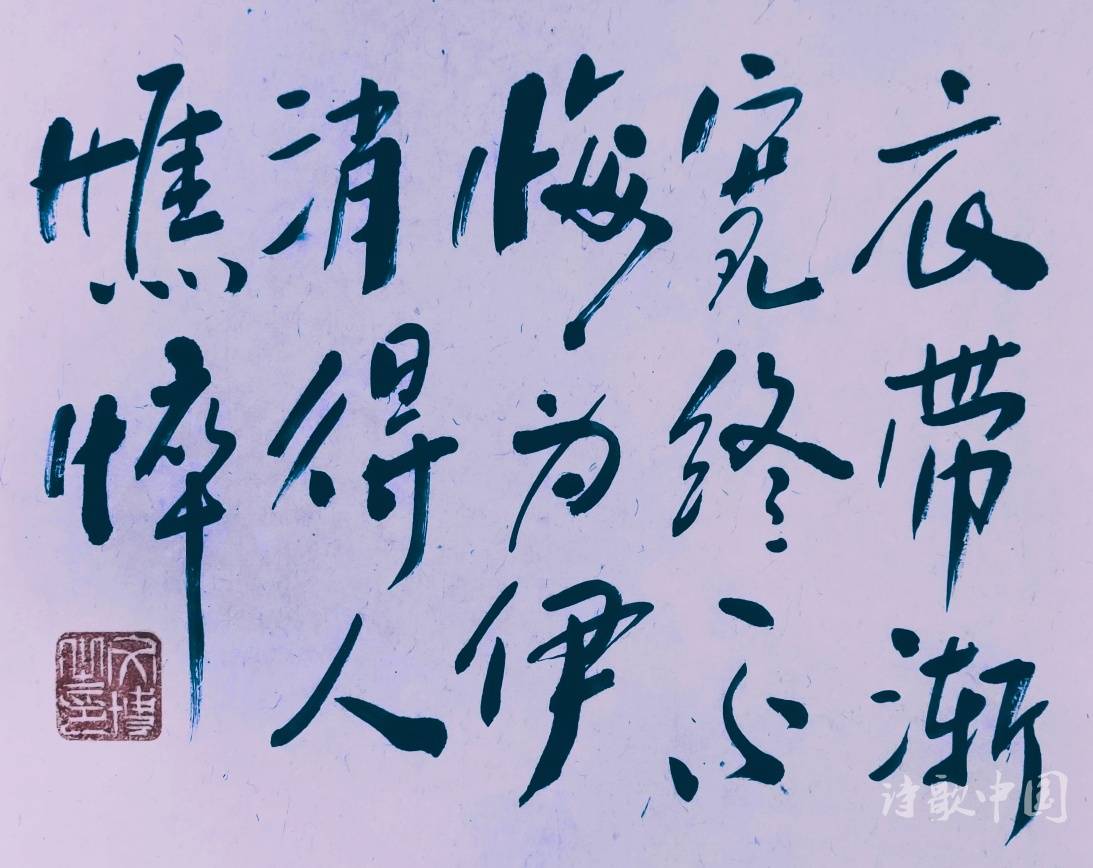 衣带渐
宽终不
悔为伊
消得人
憔悴
文博之印
诗歌中国